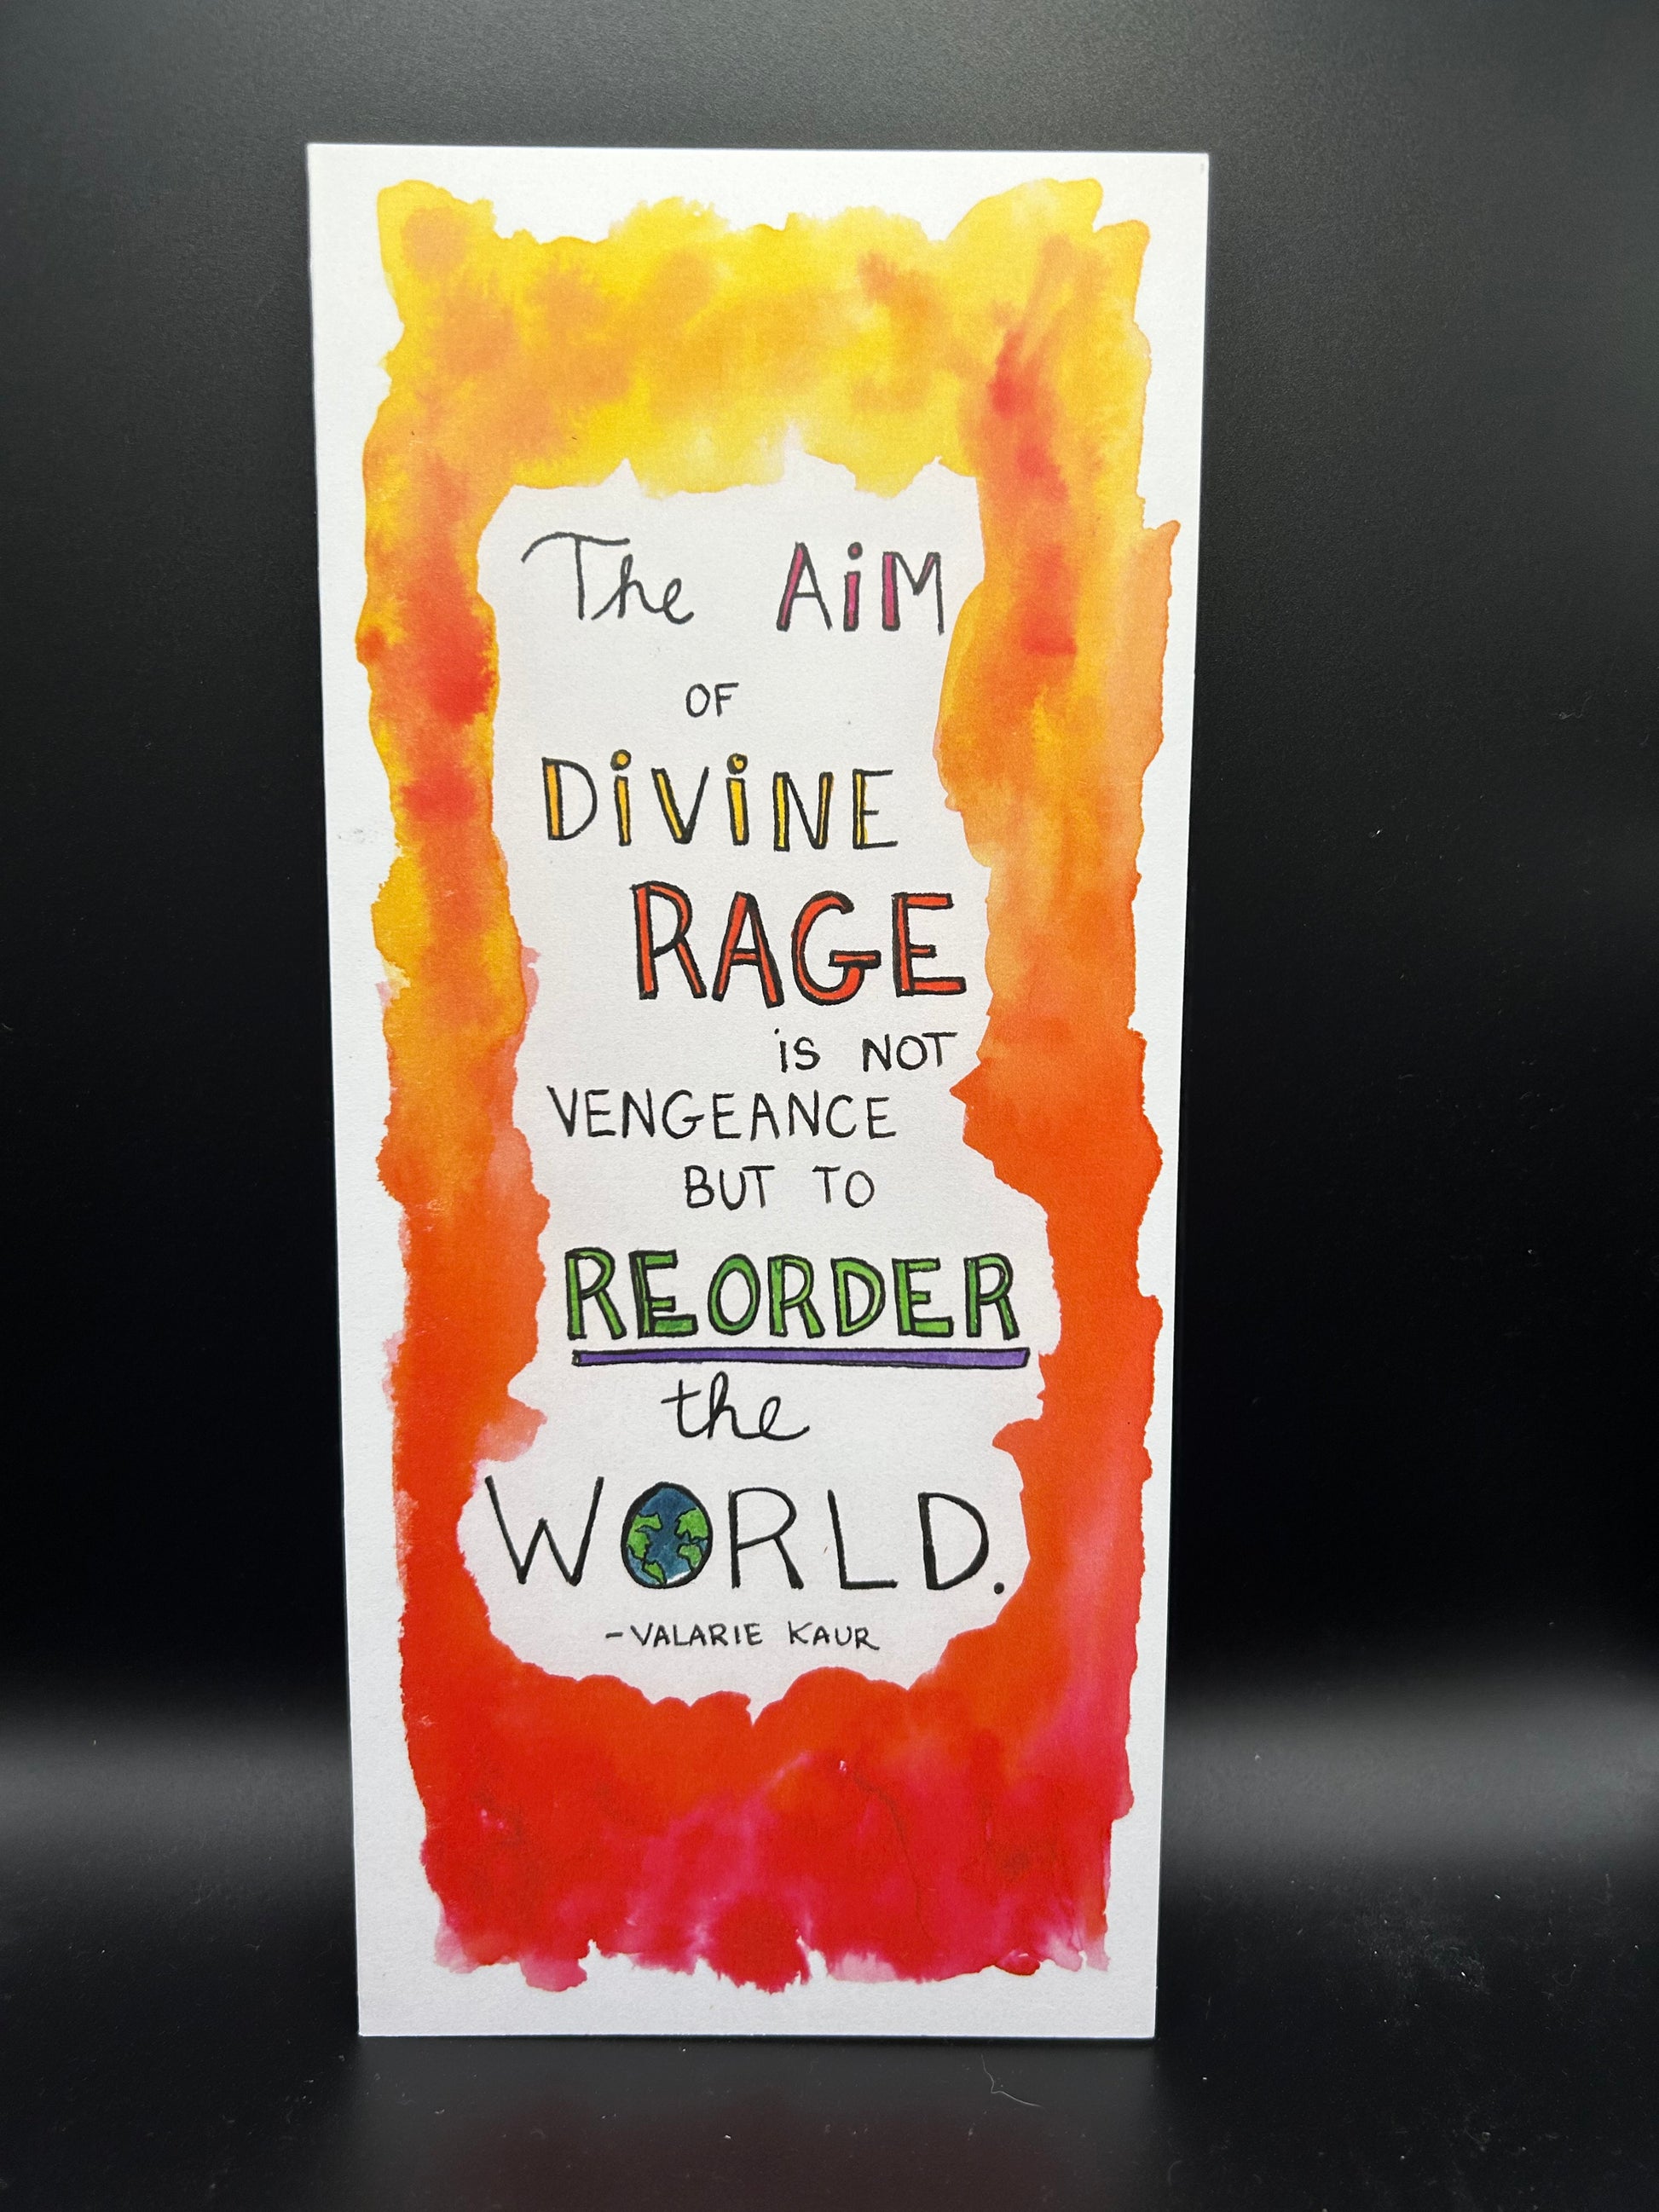 The AiM
OF
DiViNE
RAGE
iS NOT
VENGEANCE
BUT TO
REORDER
the
WORLD.
-VALARIE KAUR